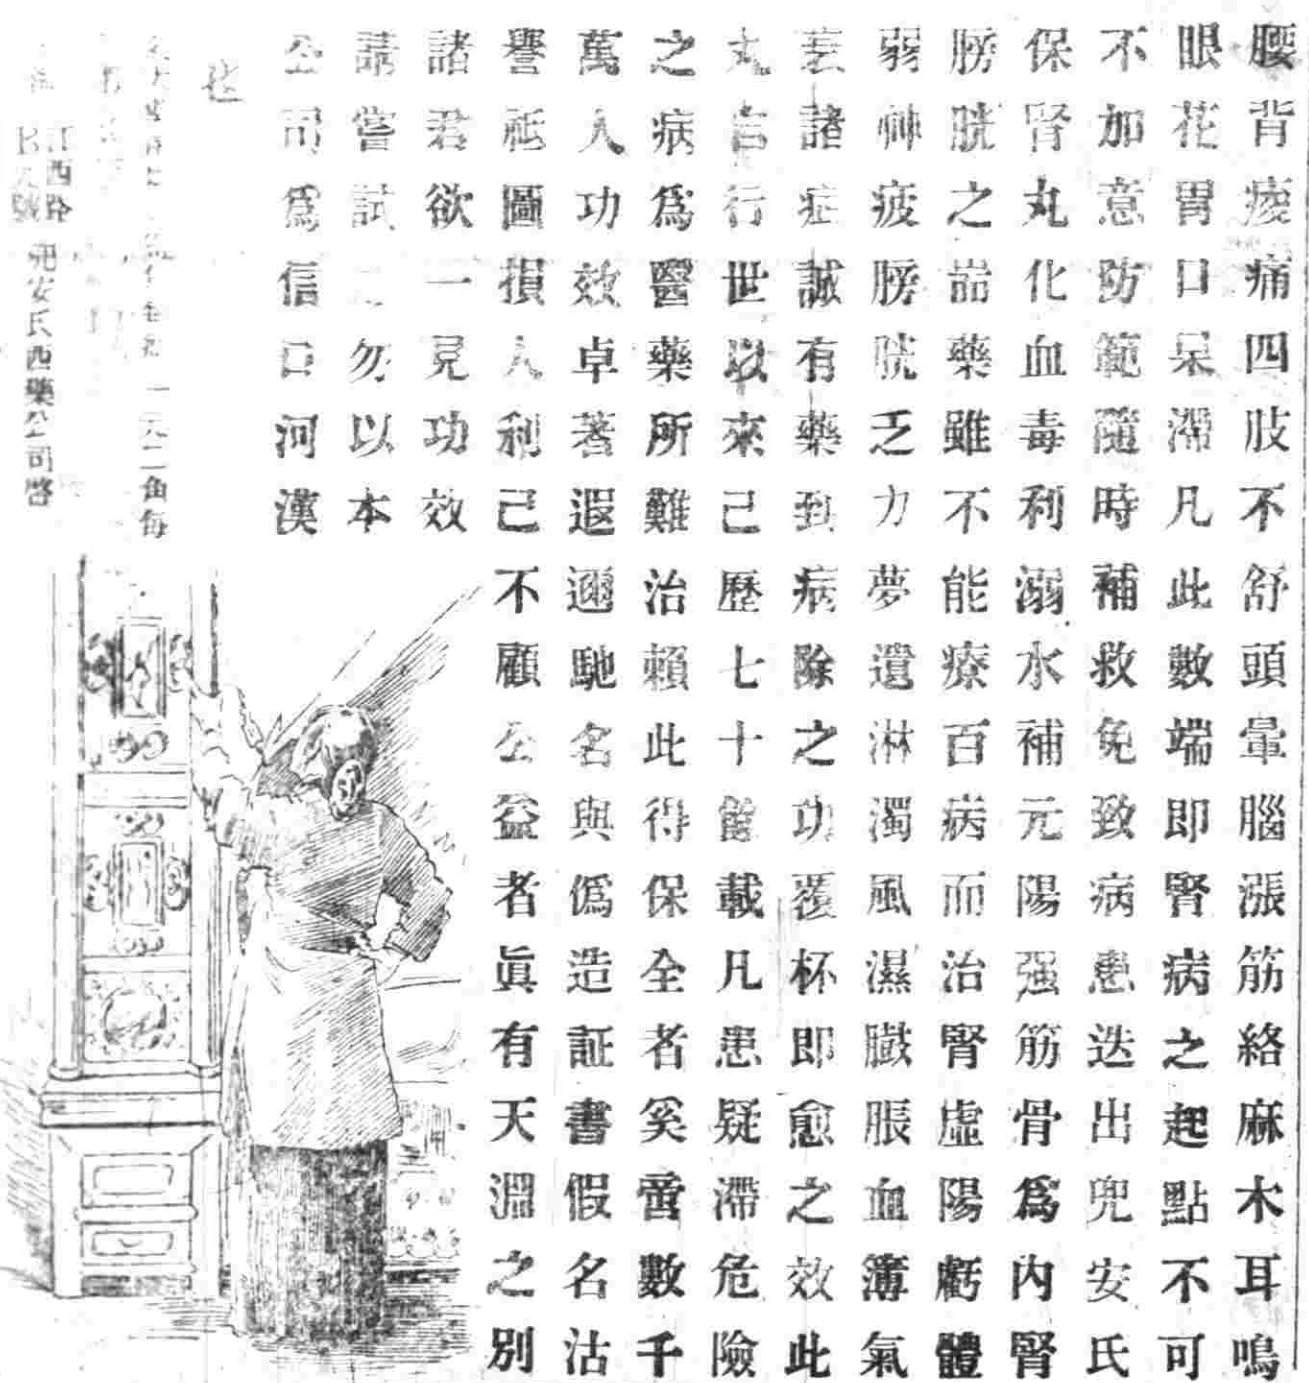 腰背痠痛四肢不舒頭暈腦漲筋絡麻木耳鳴
眼花胃口呆滯凡此數端即腎病之起點不可
不加意防範隨時補救免致病患迭出兜安氏
保腎丸化血毒利溺水補元陽强筋骨爲內腎
膀胱之喦藥雖不能療百病而治腎虛陽虧體
弱神疲膀胱乏力夢遺淋濁風濕臌脹血薄氣
諸症誠有藥到病除之功覆杯即愈之效此
丸自行世以來己歷七十餘載凡患疑滯危險
之病爲醫藥所難治賴此得保全者奚啻數千
萬人功效卓著遐邇馳名與僞造証書假名沽
譽祇圖損人利己不顧公益者眞有天淵之別
諸君欲一見功效
請嘗試 勿以本
公司爲信口河漢
也
一元二角每
江西路
兜安氏西藥公司啓